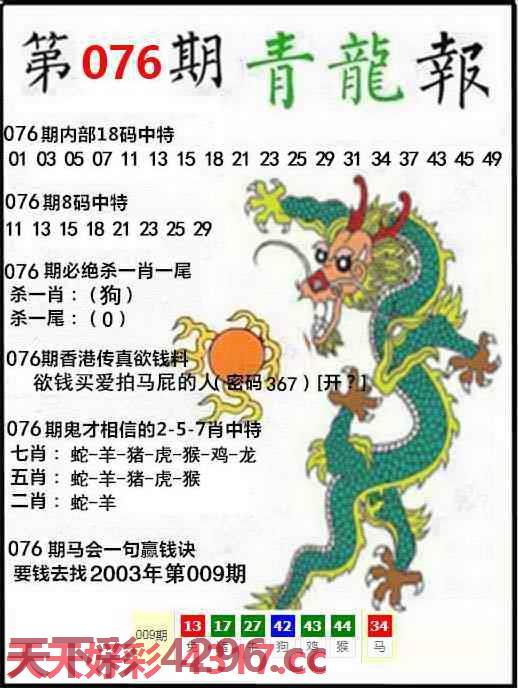 第076期 青龍報
076期内部18码中特
01 03 05 07 11 13 15 18 21 23 25 29 31 34 37 43 45 49
076期8码中特
11 13 15 18 21 23 25 29
076期必绝杀一肖一尾
杀一肖：（狗）
杀一尾：（0）
076期香港传真欲钱料
欲钱买爱拍马屁的人(密码367)[开？]
076期鬼才相信的2-5-7肖中特
七肖：蛇-羊-猪-虎-猴-鸡-龙
五肖：蛇-羊-猪-虎-猴
二肖：蛇-羊
076期马会一句赢钱诀
要钱去找2003年第009期
009期 13 17 27 42 43 44 34
狗 鸡 猴 马
天天好彩4296.cc